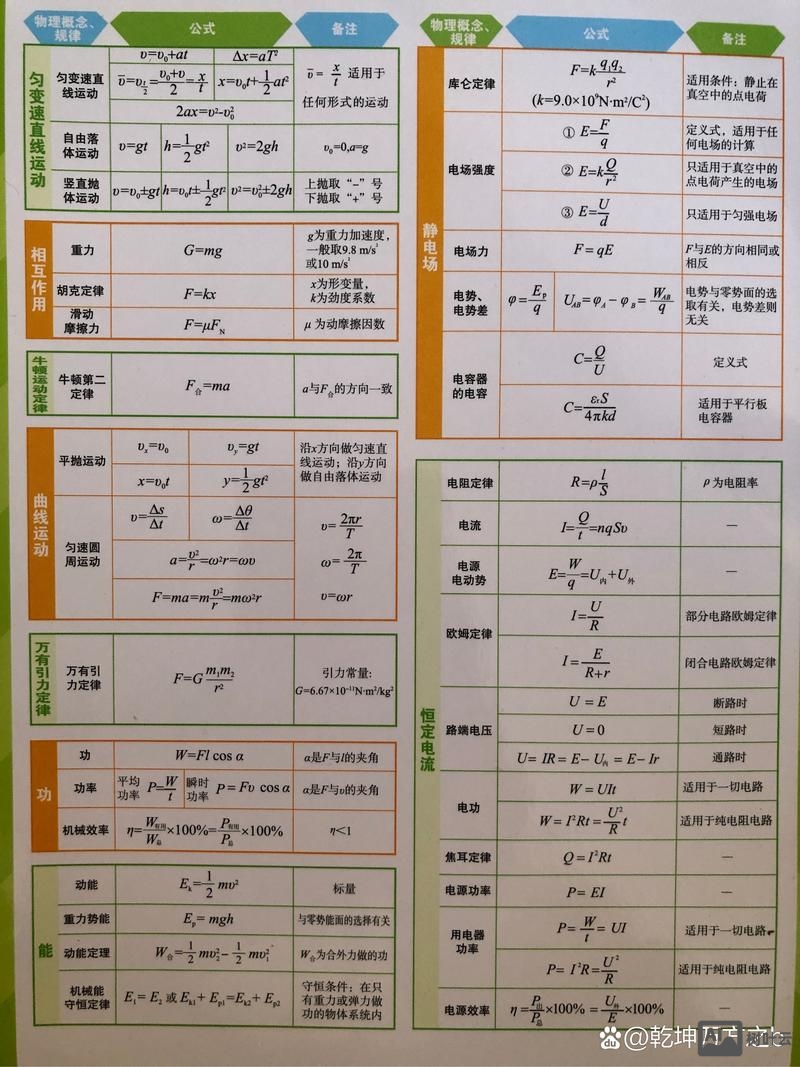 物理概念、规律 公式 备注
匀变速直线运动
匀变速直线运动
υ=υ₀+at Δx=aT²
ῡ=υ_{t/2}=(υ₀+υ)/2=x/t x=υ₀t+½at²
2ax=υ²-υ₀²
ῡ = x/t 适用于
任何形式的运动
自由落体运动 υ=gt h=½gt² υ²=2gh υ₀=0,a=g
竖直抛体运动 υ=υ₀±gt h=υ₀t±½gt² υ²=υ₀²±2gh
上抛取“-”号
下抛取“+”号
相互作用
重力 G=mg
g为重力加速度，
一般取9.8 m/s²
或10 m/s²
胡克定律 F=kx
x为形变量，
k为劲度系数
滑动摩擦力 F=μF_N μ为动摩擦因数
牛顿运动定律
牛顿第二定律 F合=ma a与F合的方向一致
曲线运动
平抛运动
υₓ=υ₀ υ_y=gt
x=υ₀t y=½gt²
沿x方向做匀速直
线运动；沿y方向
做自由落体运动
匀速圆周运动
υ=Δs/Δt ω=Δθ/Δt
a=υ²/r=ω²r=ωυ
F=ma=mυ²/r=mω²r
υ=2πr/T
ω=2π/T
υ=ωr
万有引力定律
万有引力定律 F=G m₁m₂/r²
引力常量：
G=6.67×10⁻¹¹N·m²/kg²
功
功 W=Fl cos α α是F与l的夹角
功率 平均功率 P=W/t 瞬时功率 P=Fυ cos α α是F与υ的夹角
机械效率 η=W有用/W总×100%=P有用/P总×100% η<1
能
动能 E_k=½mυ² 标量
重力势能 E_p=mgh 与零势能面的选择有关
动能定理 W合=½mυ₂²-½mυ₁² W合为合外力做的功
机械能守恒定律 E₁=E₂ 或 E_{k1}+E_{p1}=E_{k2}+E_{p2}
守恒条件：在只
有重力或弹力做
功的物体系统内
物理概念、规律 公式 备注
静电场
库仑定律
F=k q₁q₂/r²
(k=9.0×10⁹N·m²/C²)
适用条件：静止在
真空中的点电荷
电场强度
① E=F/q
定义式，适用于任
何电场的计算
② E=kQ/r²
只适用于真空中的
点电荷产生的电场
③ E=U/d 只适用于匀强电场
电场力 F=qE
F与E的方向相同或
相反
电势、电势差 φ=E_p/q U_{AB}=φ_A-φ_B=W_{AB}/q
电势与零势面的选
取有关，电势差则
无关
电容器的电容
C=Q/U 定义式
C=εᵣS/4πkd
适用于平行板
电容器
恒定电流
电阻定律 R=ρ l/S ρ为电阻率
电流 I=Q/t=nqSυ —
电源电动势 E=W/q=U内+U外 —
欧姆定律
I=U/R 部分电路欧姆定律
I=E/(R+r) 闭合电路欧姆定律
路端电压
U=E 断路时
U=0 短路时
U=IR=E-U内=E-Ir 通路时
电功
W=UIt 适用于一切电路
W=I²Rt=U²/R t 适用于纯电阻电路
焦耳定律 Q=I²Rt —
电源功率 P=EI —
用电器功率
P=W/t=UI 适用于一切电路
P=I²R=U²/R 适用于纯电阻电路
电源效率 η=P出/P总×100%=U外/E×100% —
du @乾坤
树叶云